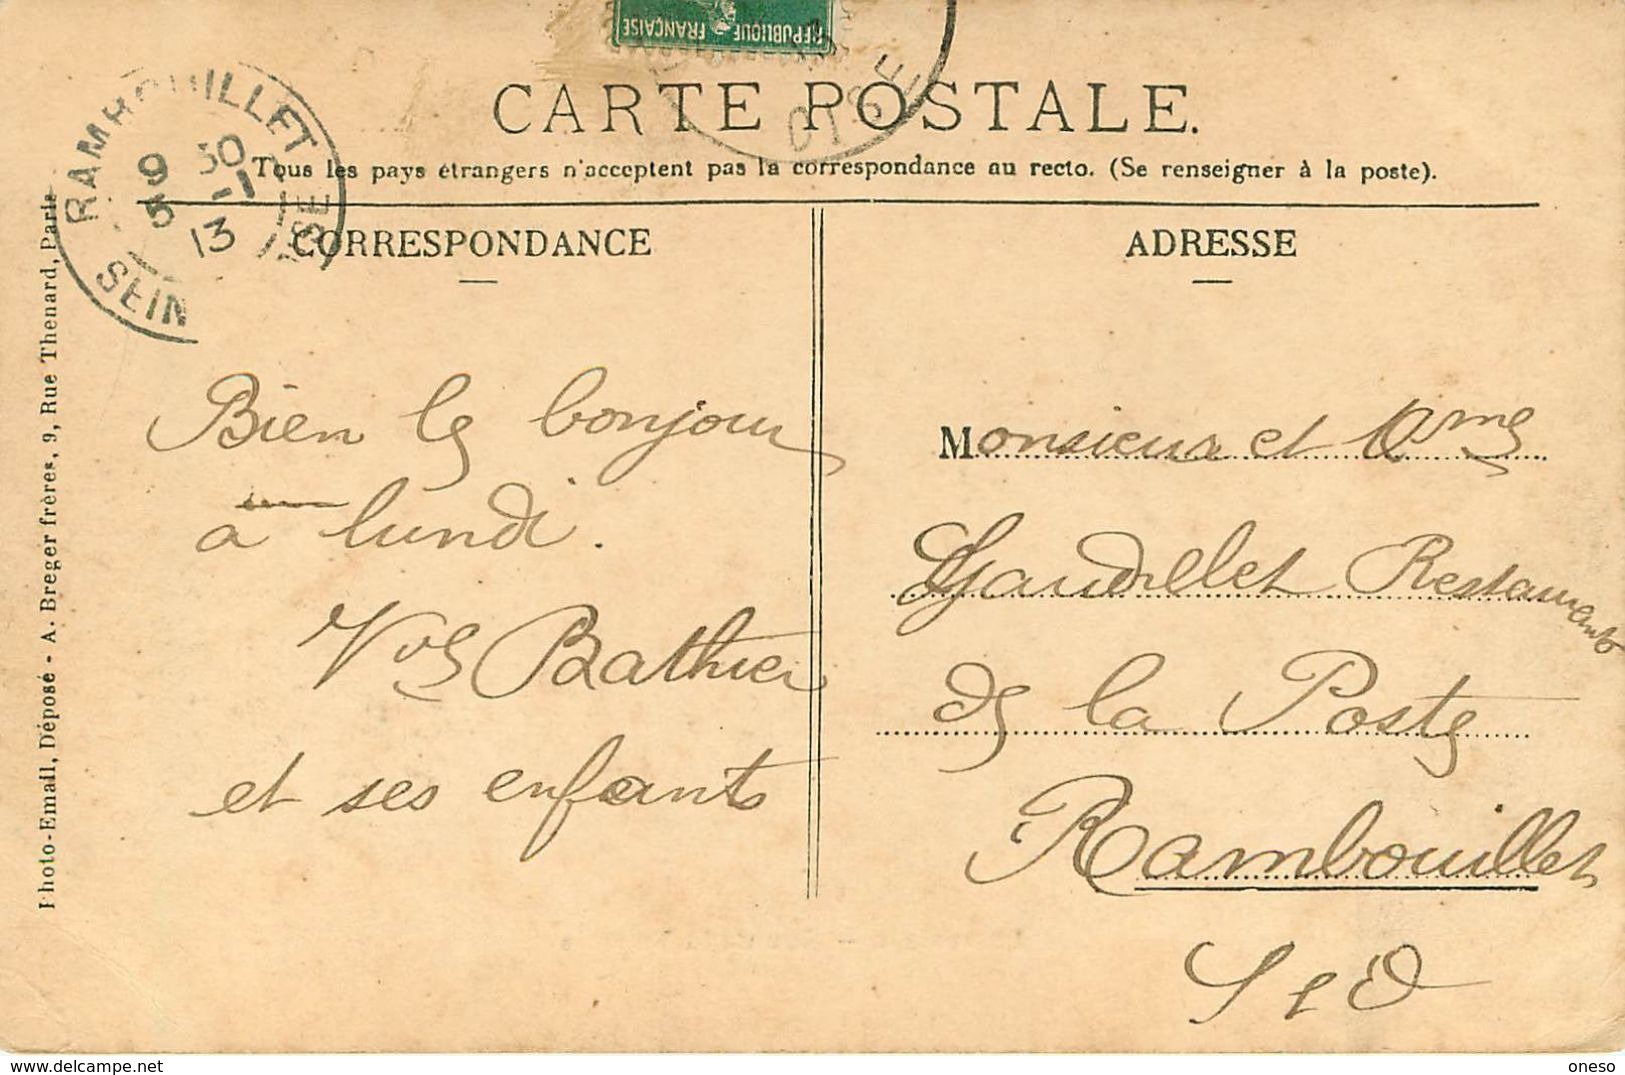 RÉPUBLIQUE FRANÇAISE
OISE
CARTE POSTALE.
Tous les pays étrangers n'acceptent pas la correspondance au recto. (Se renseigner à la poste).
RAMBOUILLET
9 30
5 -1
13
SEINE
OISE
CORRESPONDANCE
ADRESSE
Photo-Email, Déposé - A. Breger frères, 9, Rue Thenard, Paris
Bien le bonjour
a lundi.
Vve Bathier
et ses enfants
Monsieur et Mme
Gaudillet Restaurant
de la Poste
Rambouillet
S et O
www.delcampe.net
oneso